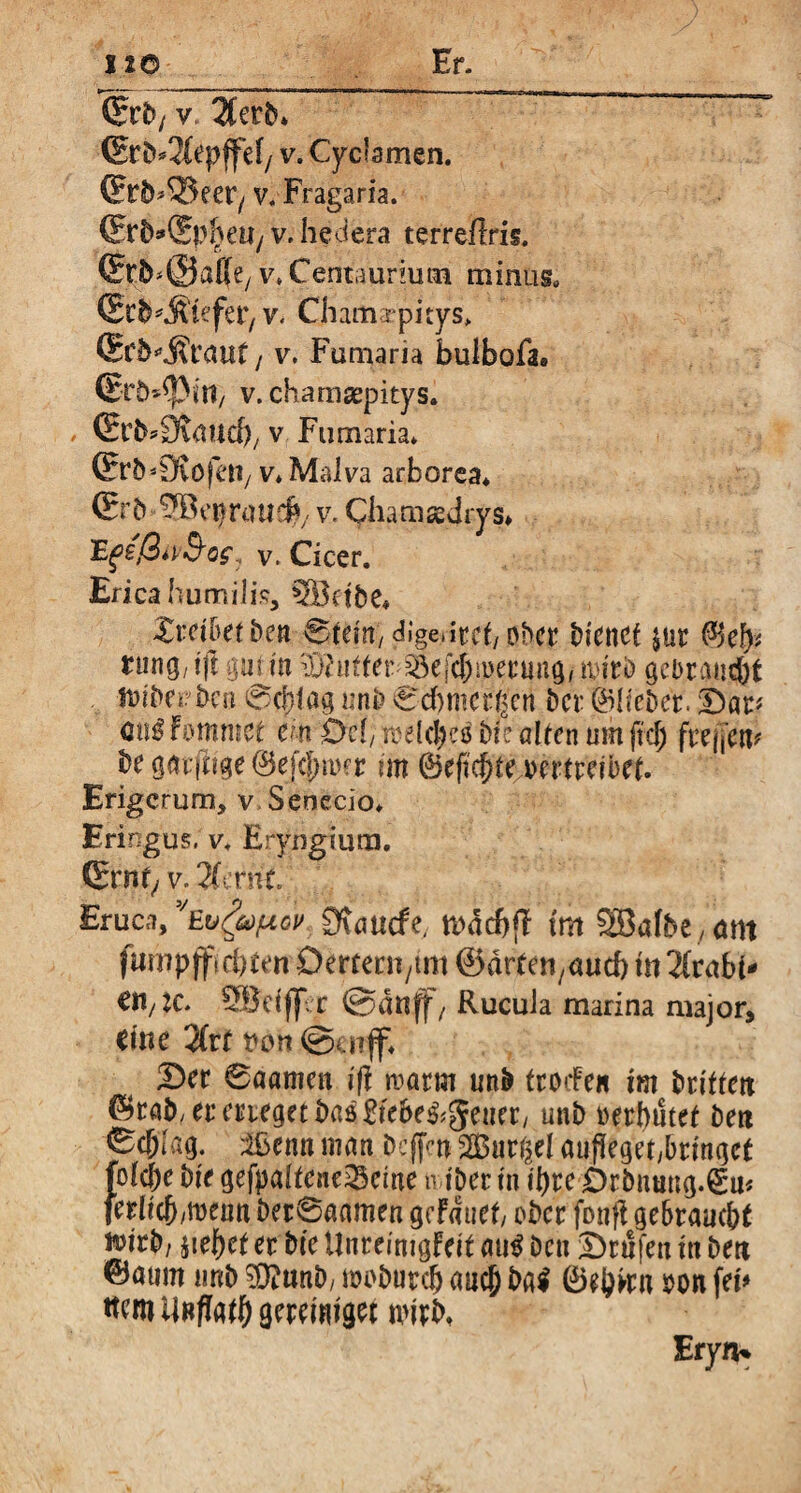 120 Er.
Erd, v. Aerd.
Erd-Aepffel, v. Cyclamen.
Erd-Beer, v. Fragaria.
Erd-Epheu, v. hedera terrestris.
Erd-Galle, v. Centaurium minus.
Erd-Kiefer, v. Chamæpitys,
Erd-Kraut, v. Fumaria bulbosa.
Erd-Pin, v. chamæpitys.
Erd-Rauch, v Fumaria.
Erd-Rosen, v. Malva arborea.
Erd-Weyrauch, v. Chamædrys.
Ἐρέβινθος, v. Cicer.
Erica humilis, Weide.
Treibet den Stein, digerirct, oder dienet zur Geh-
rung, ist gut in Mutter-Beschwerung, wird gebraucht
wider den Schlag und Schmertzen der Glieder. Dar-
aus kommet ein Oel, welches die alten um sich fressen-
de garstige Geschwer im Gesichte vertreibet.
Erigerum, v. Senecio.
Eringus, v. Eryngium.
Ernt, v. Aernt.
Eruca, Ἐύζωμον, Raucke, wächst im Walde, am
sumpffichten Oertern, im Gärten, auch in Arabi-
en, ꝛc. Weisser Sänff, Rucula marina major,
eine Art von Senff.
Der Saamen ist warm und trocken im dritten
Grad, er erreget das Liebes-Feuer, und verhütet den
Schlag. Wenn man dessen Wurtzel aufleget, bringet
solche die gespaltene Beine wider in ihre Ordnung. Eu-
serlich, wenn der Saamen gekäuet, oder sonst gebraucht
wird, ziehet er die Unreinigkeit aus den Drüsen in den
Gaum und Mund, wodurch auch das Gehirn von sei-
nem Unflath gereiniget wird.
Eryn-